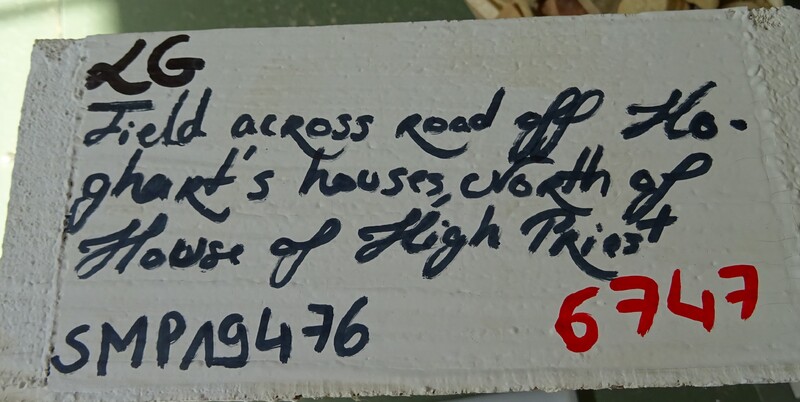 LG
Field across road off Ho-
ghart's houses, North of
House of High Priest
SMP19476
6747